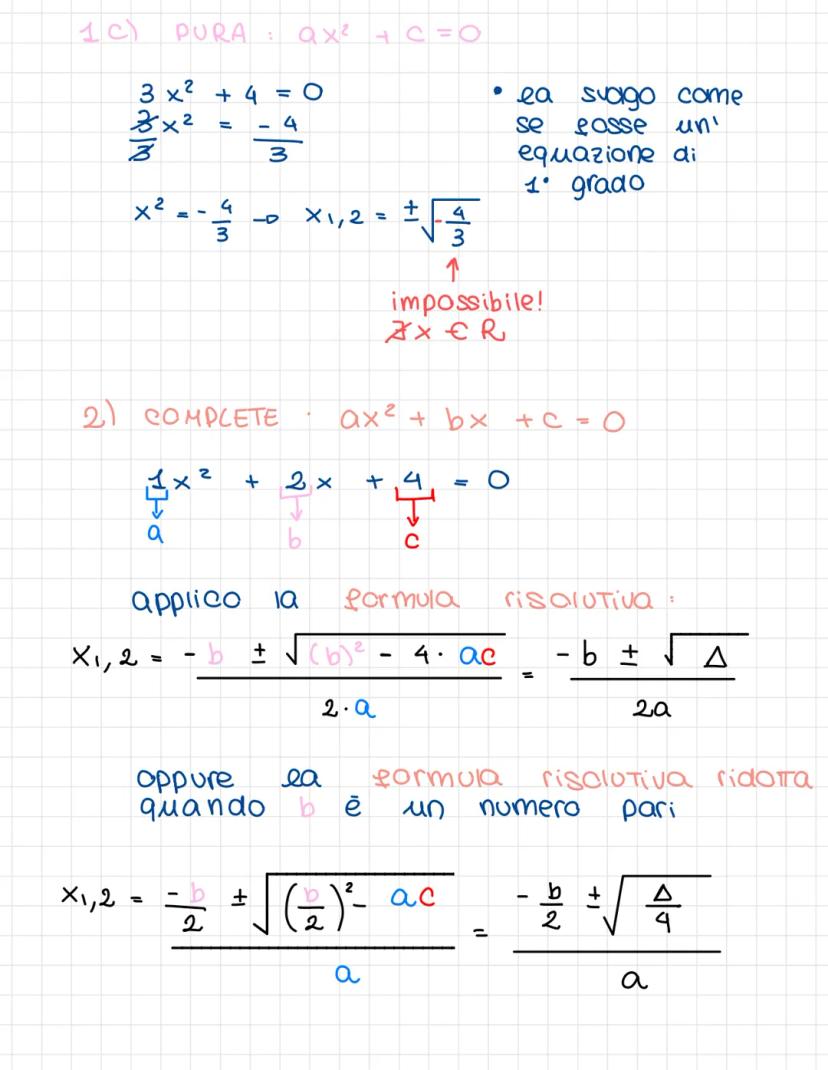 1c) PURA : ax² + c = 0
3x² + 4 = 0
3x²/3 = -4/3
• la svolgo come
se fosse un'
equazione di
1° grado
x² = -4/3 → x₁,₂ = ±√-4/3
↑
impossibile!
∄x ∈ R
2) COMPLETE : ax² + bx + c = 0
1x² + 2x + 4 = 0
a b c
applico la formula risolutiva :
x₁,₂ = -b ± √(b)² - 4· ac / 2·a = -b ± √Δ / 2a
oppure la formula risolutiva ridotta
quando b ē un numero pari
x₁,₂ = -b/2 ± √(b/2)² - ac / a = -b/2 ± √Δ/4 / a